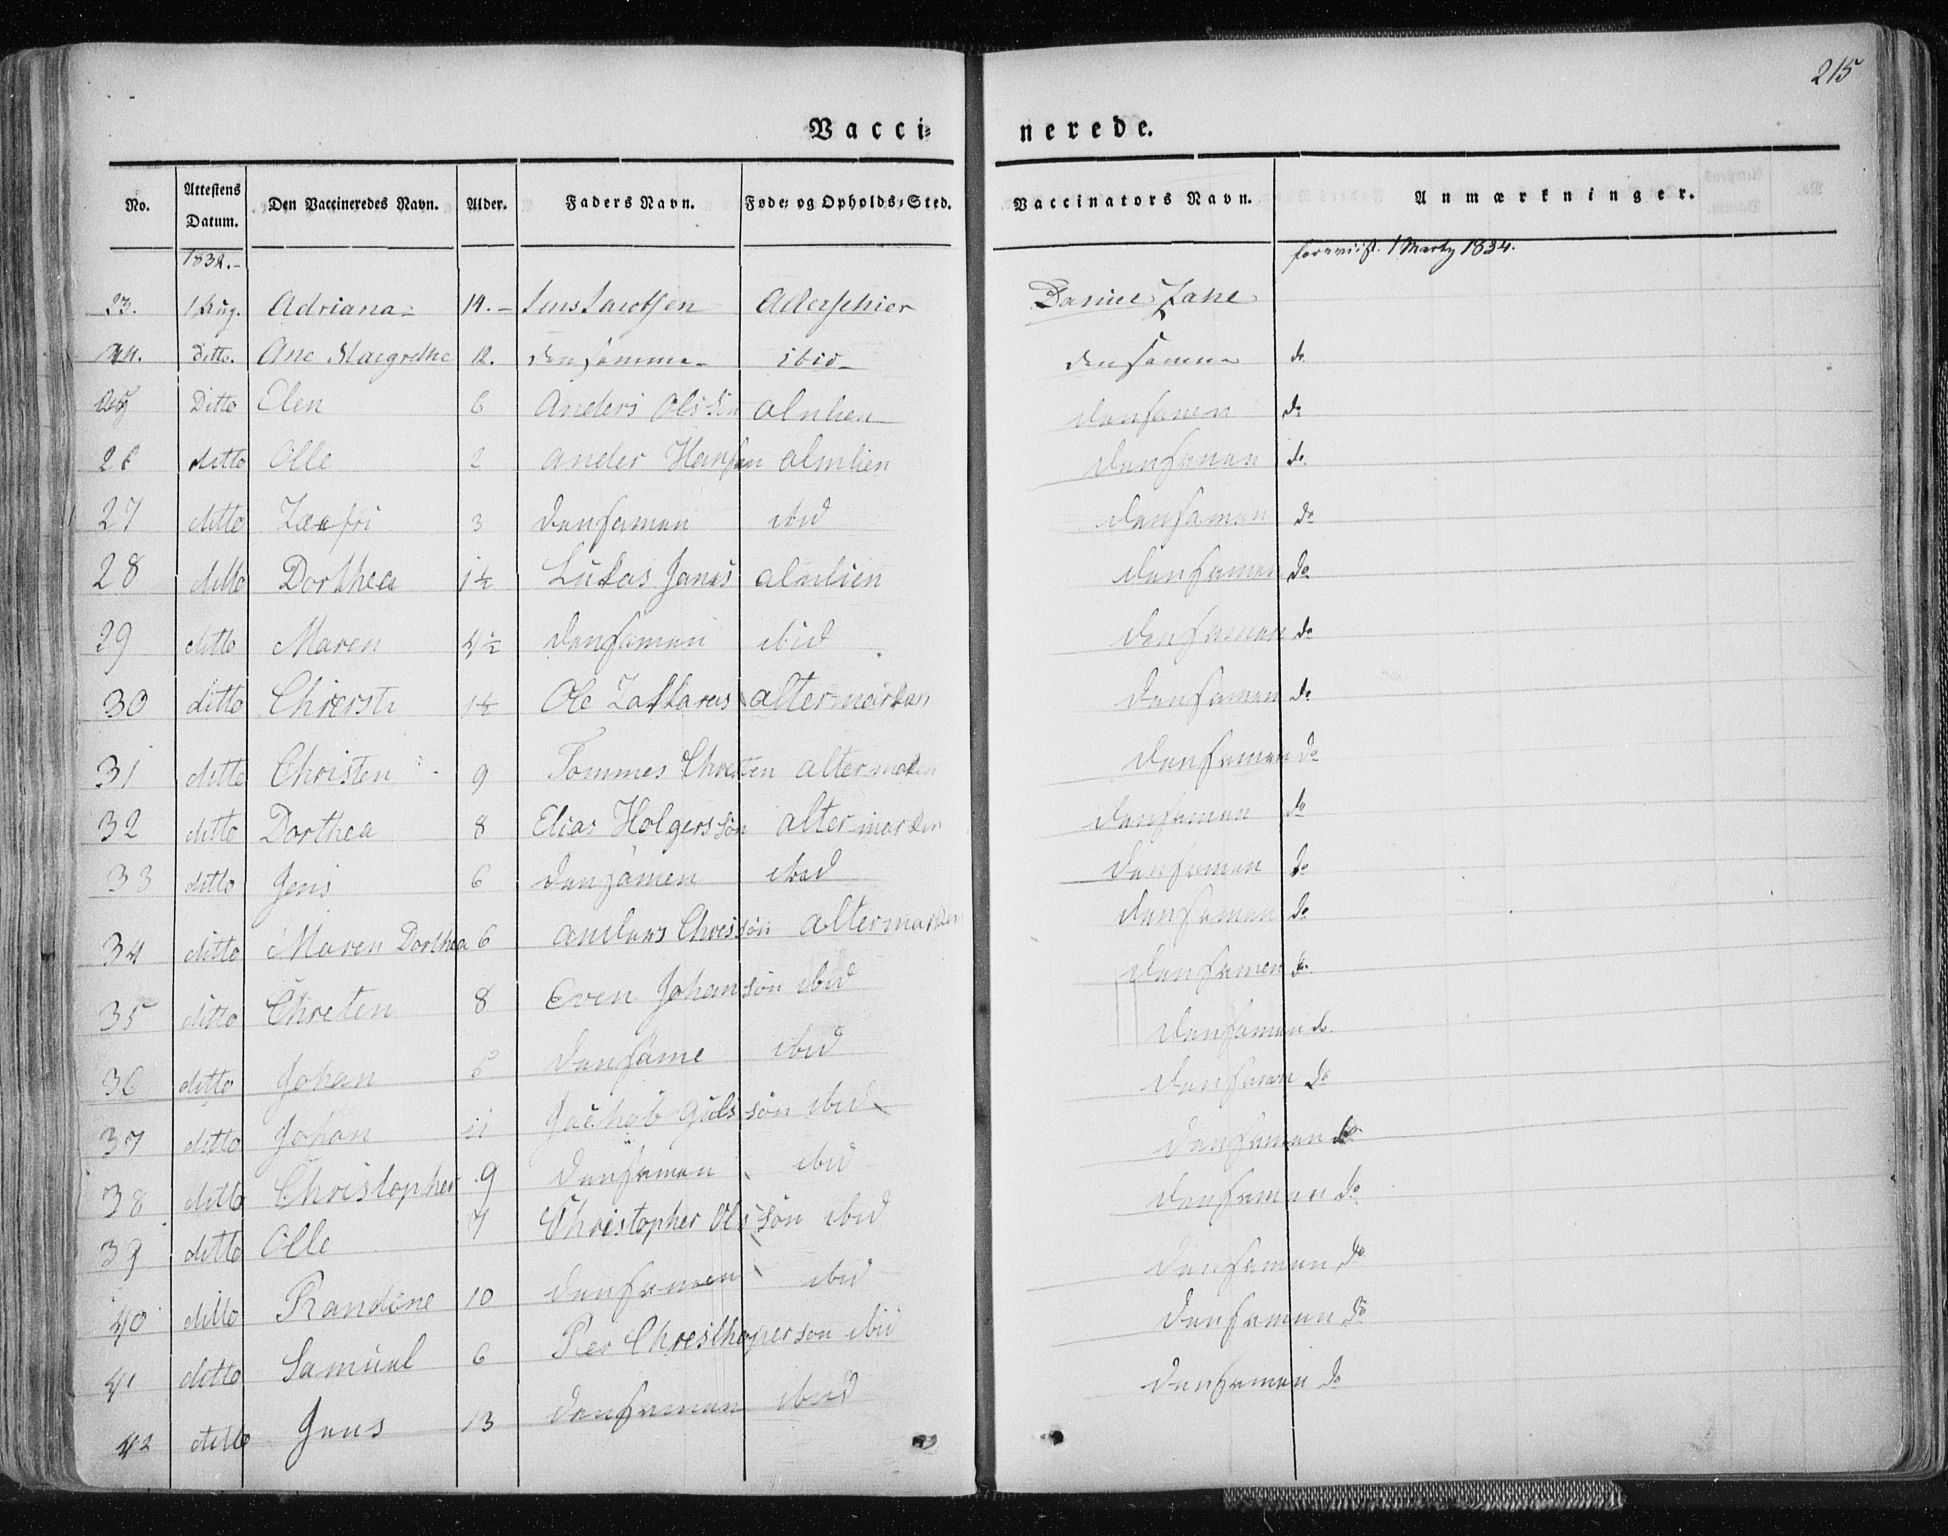 215
Vacci= nerede.
No. Attestens Datum. Den Vaccineredes Navn. Alder. Faders Navn. Føde= og Opholds=Sted. Vaccinators Navn. Anmærkninger.
1832.- foreviist 1 Marty 1834.
23. 1 Aug. Adriana 14.- Jens Jacobsen Daniel Zahe
24. Ditto. Ane Margrethe 12. den samme ibid den samme do
25 Ditto Elen 6 Anders Olssön Almlien densamen do
26 ditto Olle 2 Ander Hansen almlien densamen do
27 ditto 3 densamen ibid densamen do
28 ditto Dorthea 1½ Lukas Janas almlien densamen do
29 ditto Maren 4½ densamen ibid densamen do
30 ditto Chrersti 1½ Ole Zakkarias altermarken densamen do
31 ditto Christen 9 Tommes Chresten altermarken densamen do
32 ditto Dorthea 8 Elias Holgerssön altermarken densamen do
33 ditto Jens 6 densamen ibid densamen do
34 ditto Maren Dorthea 6 anders Chressön altermarken densamen do
35 ditto Chresten 8 Even Johansön ibid densamen do
36 ditto Johan 6 densame ibid densamen do
37 ditto Johan 11 Jachob ibid densamen do
38 ditto Christopher 9 densamen ibid densamen do
39 ditto Olle 7 Christopher Olssön ibid densamen do
40 ditto Randine 10 densamen ibid densamen do
41 ditto Samuel 6 Per Chresthopersön ibid densamen do
42 ditto Jens 13 densamen ibid densamen do